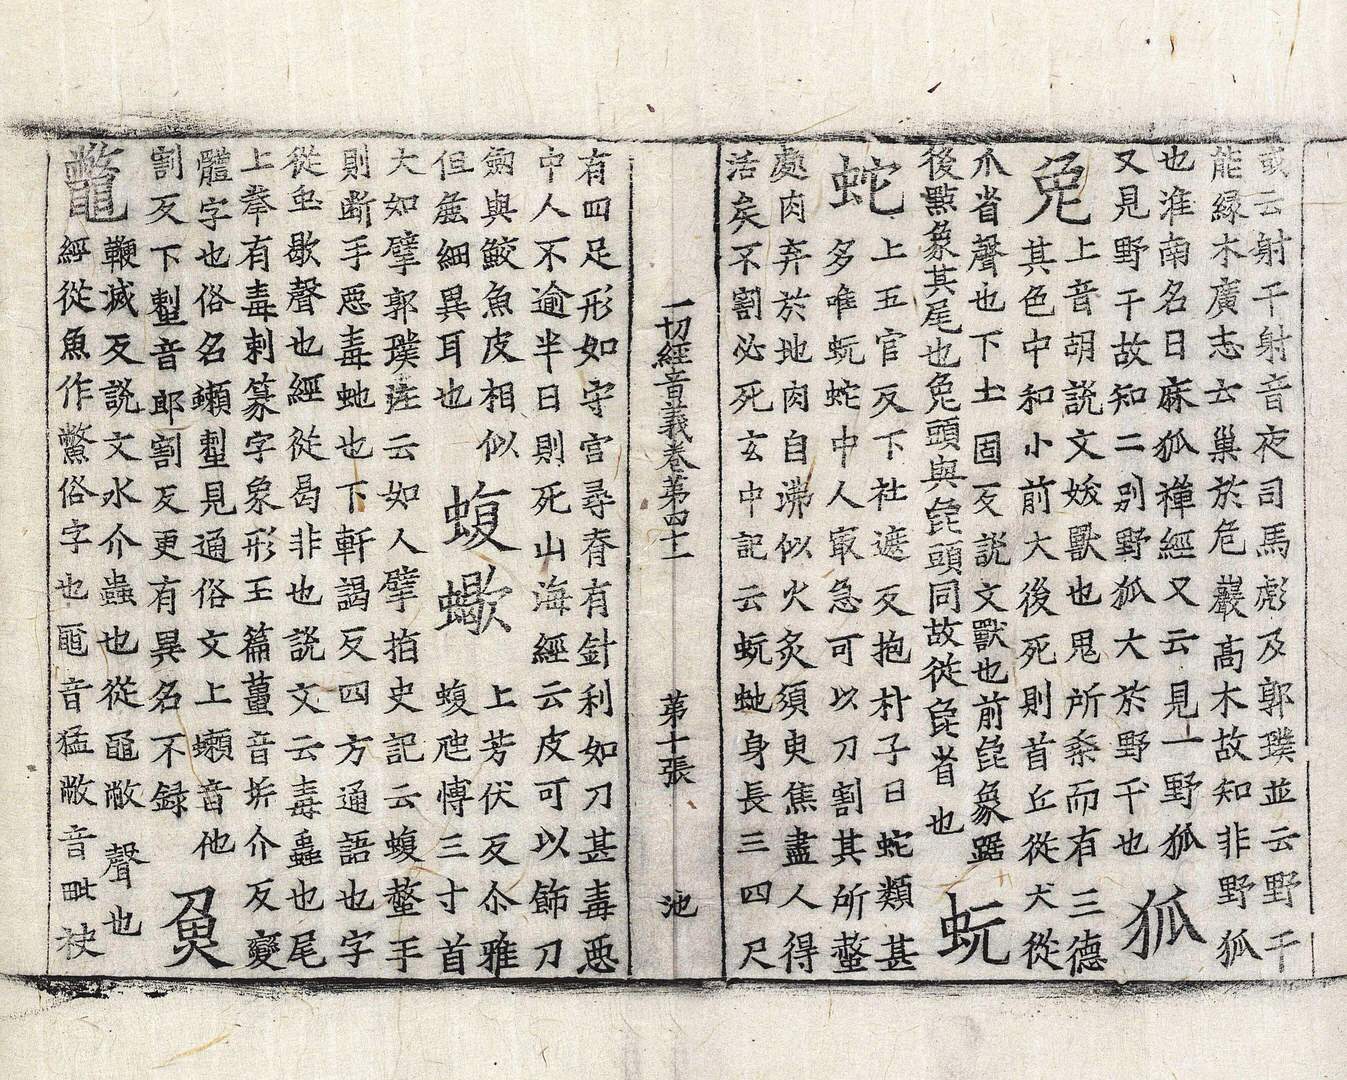 或云射干射音夜司馬彪及郭璞並云野干
能緣木廣志云巢於危巖高木故知非野狐
也淮南名曰麻狐禪經又云見一野狐
又見野干故知二別野狐大於野干也 狐
兔 上音胡說文妖獸也鬼所乘而有三德
其色中和小前大後死則首丘從犬從
爪省聲也下土固反說文獸也前㲋象踞
後點象其尾也兔頭與㲋頭同故從㲋省也 蚖
蛇 上五官反下社遮反抱朴子曰蛇類甚
多唯蚖蛇中人㝡急可以刀割其所螫
處肉弃於地肉自沸似火炙須臾焦盡人得
活矣不割必死玄中記云蚖虵身長三四尺
一切經音義卷第四十一 第十張 池
有四足形如守宮尋脊有針利如刀甚毒惡
中人不逾半日則死山海經云皮可以飾刀
劒與鮫魚皮相似 上芳伏反尒雅
但麁細異耳也 蝮蠍 蝮虺博三寸首
大如擘郭璞注云如人擘拍史記云蝮螫手
則斷手惡毒虵也下軒謁反四方通語也字
從虫歇聲也經從曷非也說文云毒蟲也尾
上舉有毒刺篆字象形玉篇蠆音拆介反變
體字也俗名蠍𧒿見通俗文上𧓽音他
割反下𧒿音郎割反更有異名不錄 𪚦
鼈 鞭滅反說文水介蟲也從黽敝聲也
經從魚作鱉俗字也黽音猛敝音毗袂